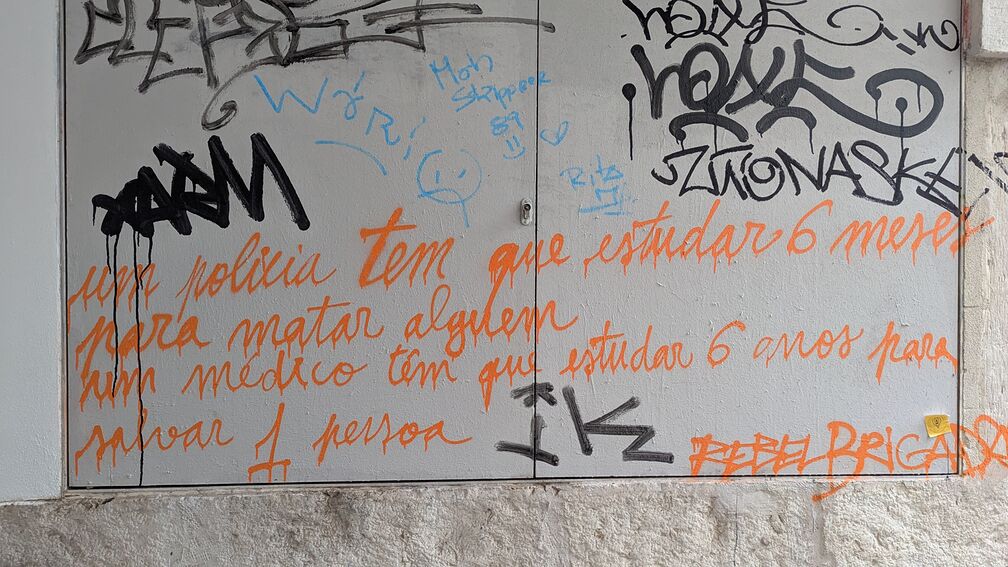 Wári
Moh
Skippeer
89
Rita
NOXE
ZÚONASKE
um polícia tem que estudar 6 meses
para matar alguem
um médico têm que estudar 6 anos para
salvar 1 pessoa
IK
REBEL BRIGADA